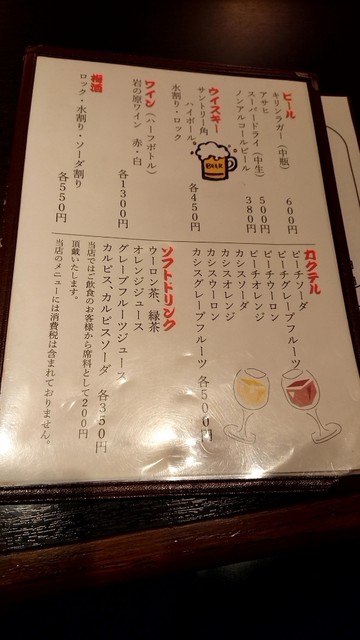 ビール
キリンラガー（中瓶） 600円
アサヒ
スーパードライ（中生） 500円
ノンアルコールビール 380円
BEER
ウイスキー
サントリー角
ハイボール
水割り・ロック 各450円
ワイン（ハーフボトル）
岩の原ワイン 赤・白 各1300円
梅酒
ロック・水割り・ソーダ割り 各550円
カクテル
ピーチソーダ
ピーチグレープフルーツ
ピーチウーロン
ピーチオレンジ
カシスソーダ
カシスオレンジ
カシスウーロン
カシスグレープフルーツ 各500円
ソフトドリンク
ウーロン茶、緑茶
オレンジジュース
グレープフルーツジュース
カルピス、カルピスソーダ 各350円
当店ではご飲食のお客様から席料として200円
頂戴いたします。
当店のメニューには消費税は含まれておりません。